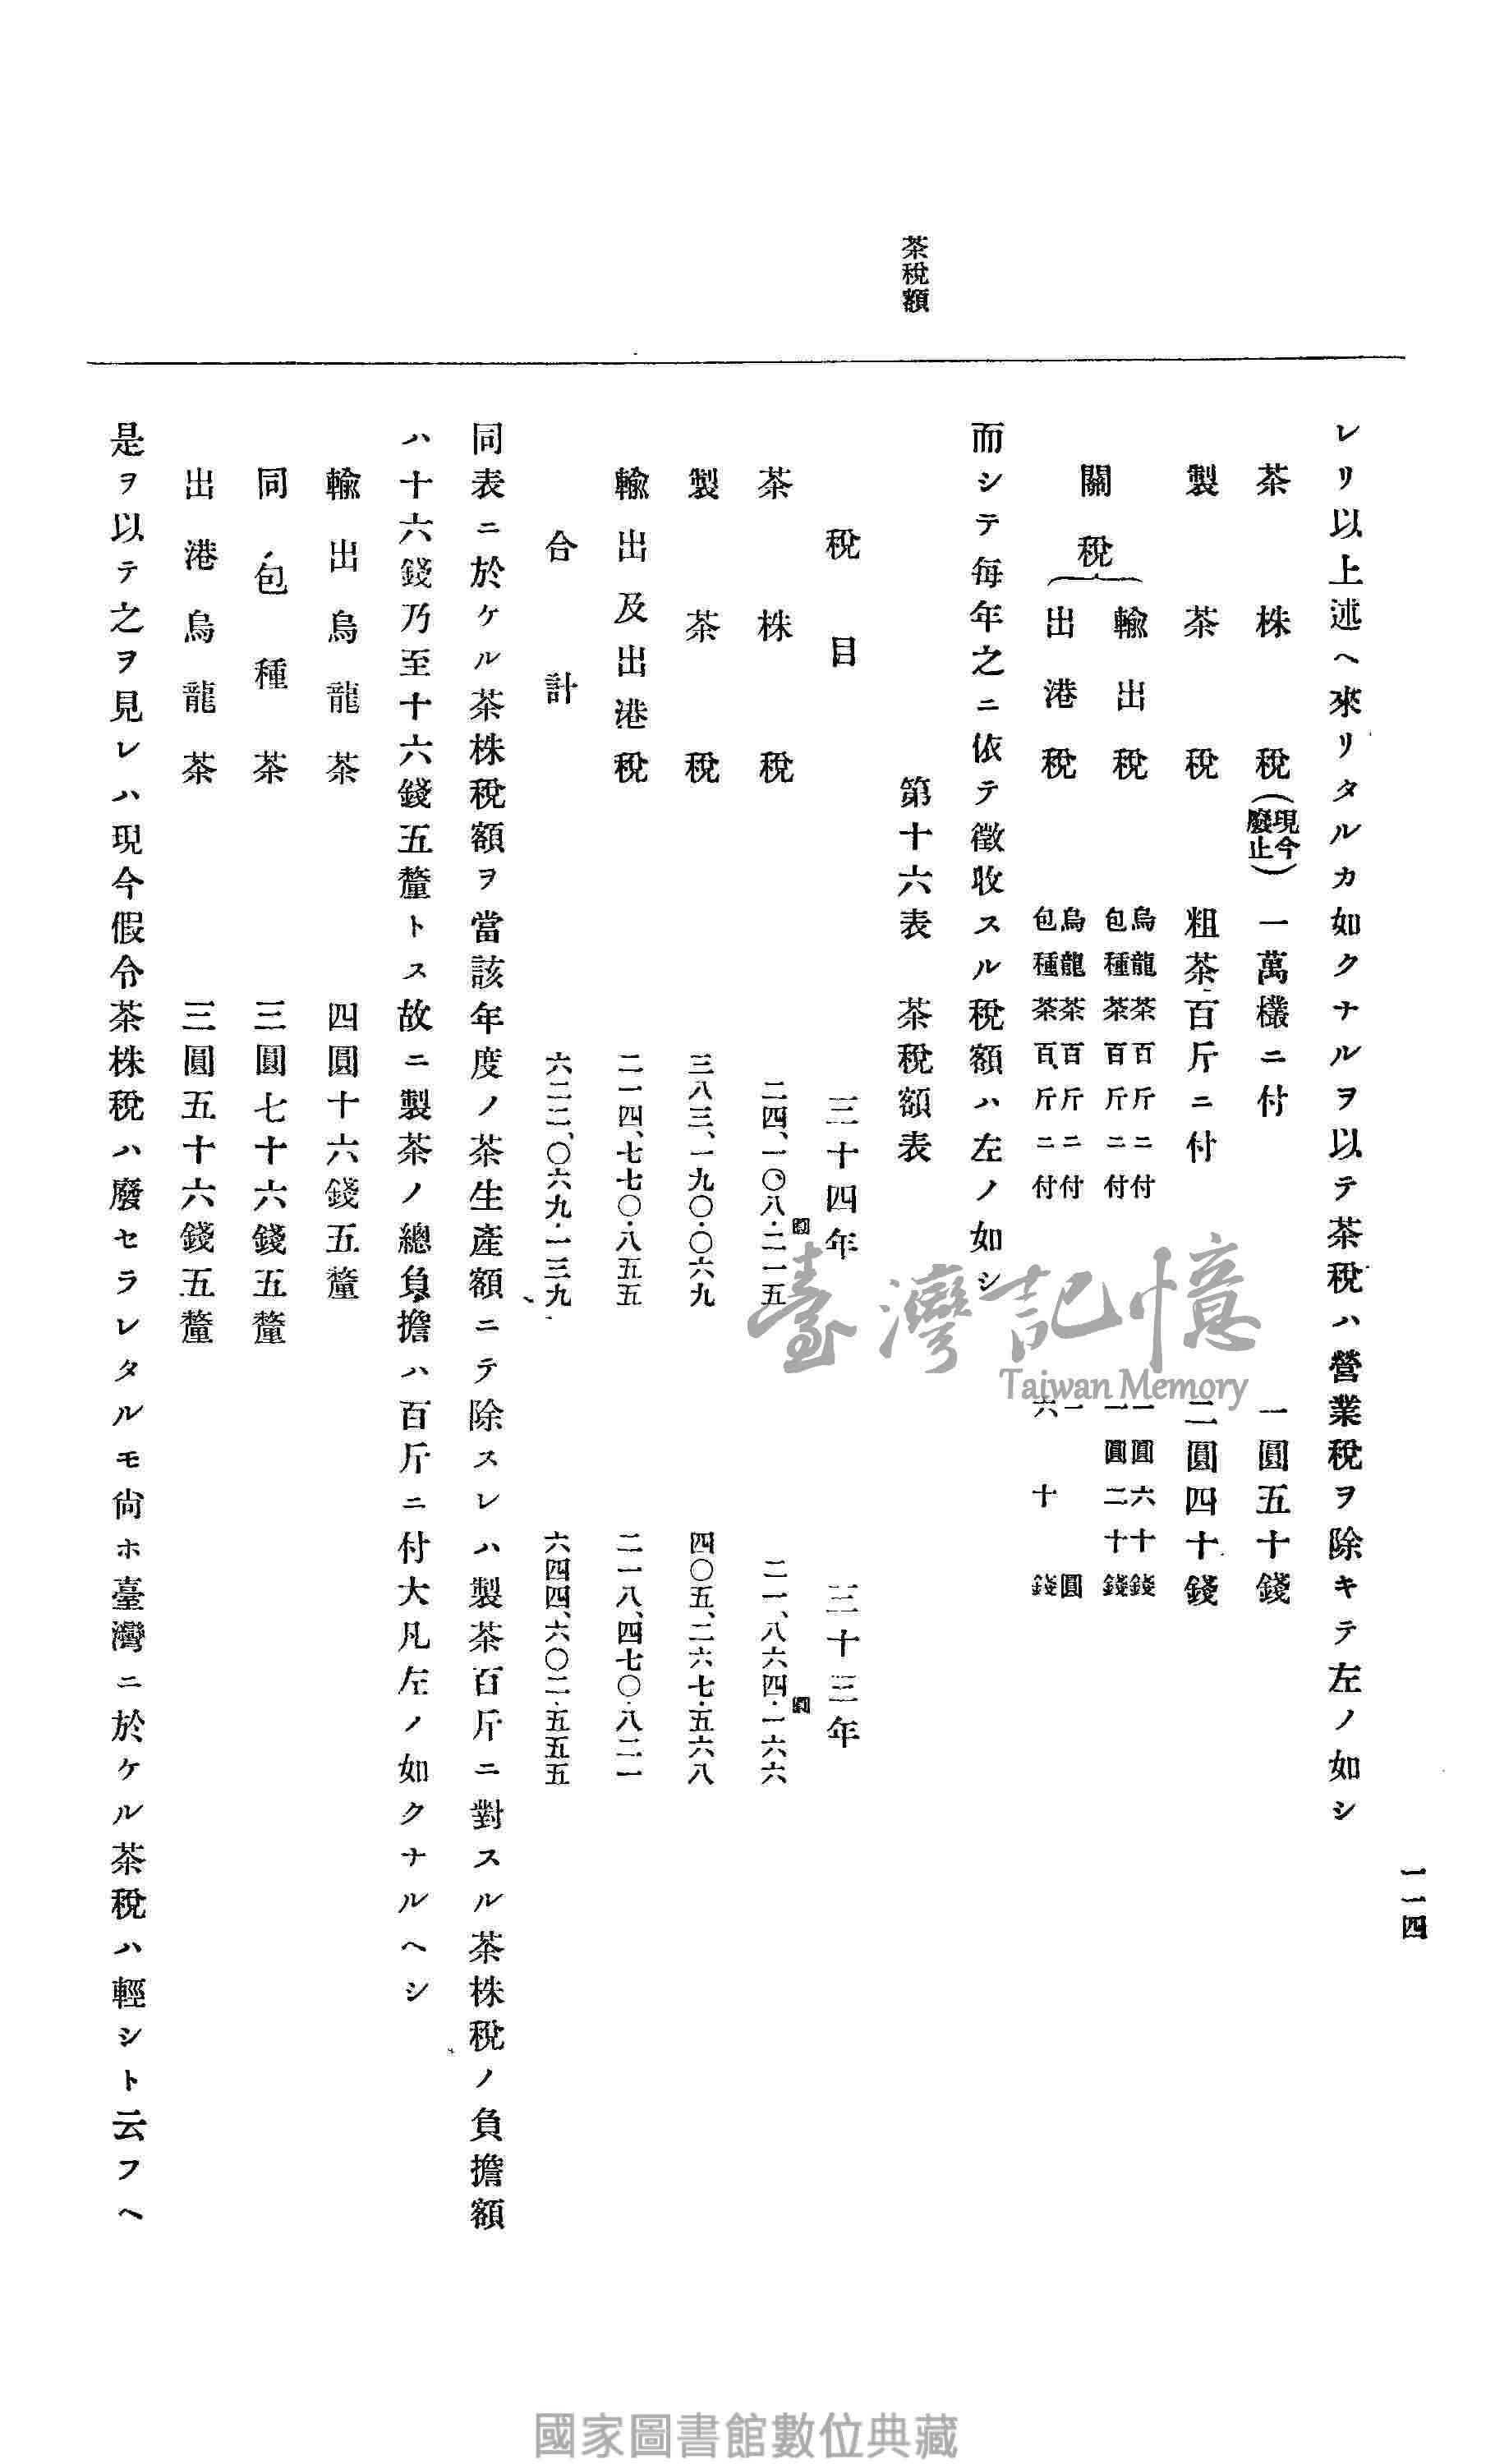 一一四
茶稅額
レリ以上述ヘ來リタルカ如クナルヲ以テ茶稅ハ營業稅ヲ除キテ左ノ如シ
茶株稅(現今廢止)一萬欉ニ付 一圓五十錢
製茶稅 粗茶百斤ニ付 二圓四十錢
關稅
輸出稅 烏龍茶百斤ニ付 一圓六十錢
包種茶百斤ニ付 一圓二十錢
出港稅 烏龍茶百斤ニ付 一圓
包種茶百斤ニ付 六十錢
而シテ每年之ニ依テ徵收スル稅額ハ左ノ如シ
第十六表 茶稅額表
稅目 三十四年 三十三年
茶株稅 二四、一〇八・二一五圓 二一、八六四・一六六圓
製茶稅 三八三、一九〇・〇六九 四〇五、二六七・五六八
輸出及出港稅 二一四、七七〇・八五五 二一八、四七〇・八二一
合計 六二二、〇六九・一三九 六四四、六〇二・五五五
同表ニ於ケル茶株稅額ヲ當該年度ノ茶生產額ニテ除スレハ製茶百斤ニ對スル茶株稅ノ負擔額
ハ十六錢乃至十六錢五釐トス故ニ製茶ノ總負擔ハ百斤ニ付大凡左ノ如クナルヘシ
輸出烏龍茶 四圓十六錢五釐
同包種茶 三圓七十六錢五釐
出港烏龍茶 三圓五十六錢五釐
是ヲ以テ之ヲ見レハ現今假令茶株稅ハ廢セラレタルモ尙ホ臺灣ニ於ケル茶稅ハ輕シト云フヘ
臺灣記憶
Taiwan Memory
國家圖書館數位典藏